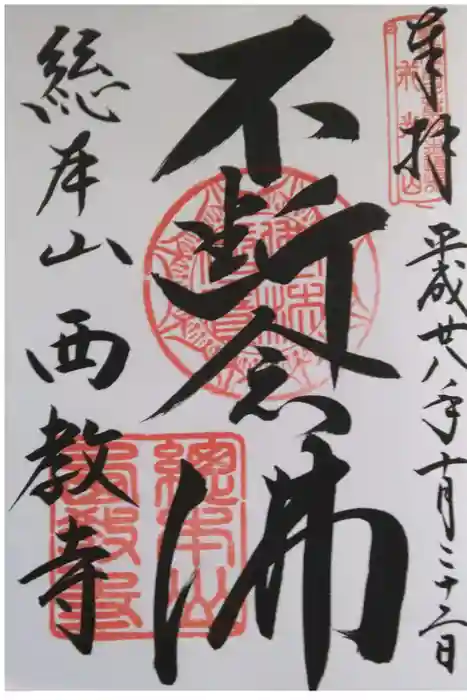 奉拝
平成廿八年十月二十二日
不断念佛
総本山 西教寺
總本山
西教寺